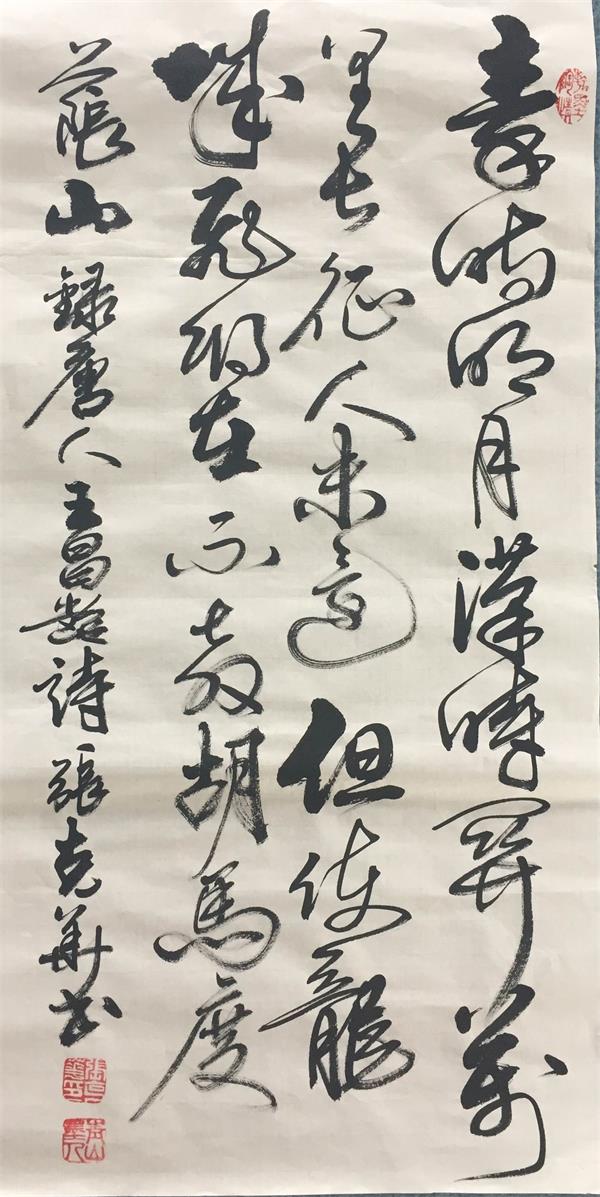 秦時明月漢時關萬
里長征人未還但使龍
城飛將在不教胡馬度
陰山 錄唐人王昌齡詩 張克華書